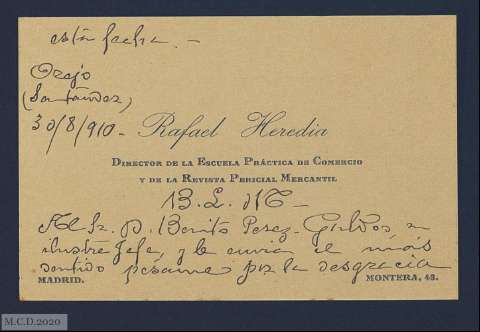 esta fecha. —
Orejo
(Santander)
30/8/910 -
Rafael Heredia
DIRECTOR DE LA ESCUELA PRÁCTICA DE COMERCIO
Y DE LA REVISTA PERICIAL MERCANTIL
B. L. M —
Al Sr. D. Benito Perez-Galdos su
ilustre Jefe, y le envia el más
sentido pésame por la desgracia
MADRID.
MONTERA, 43.
M.C.D.2020